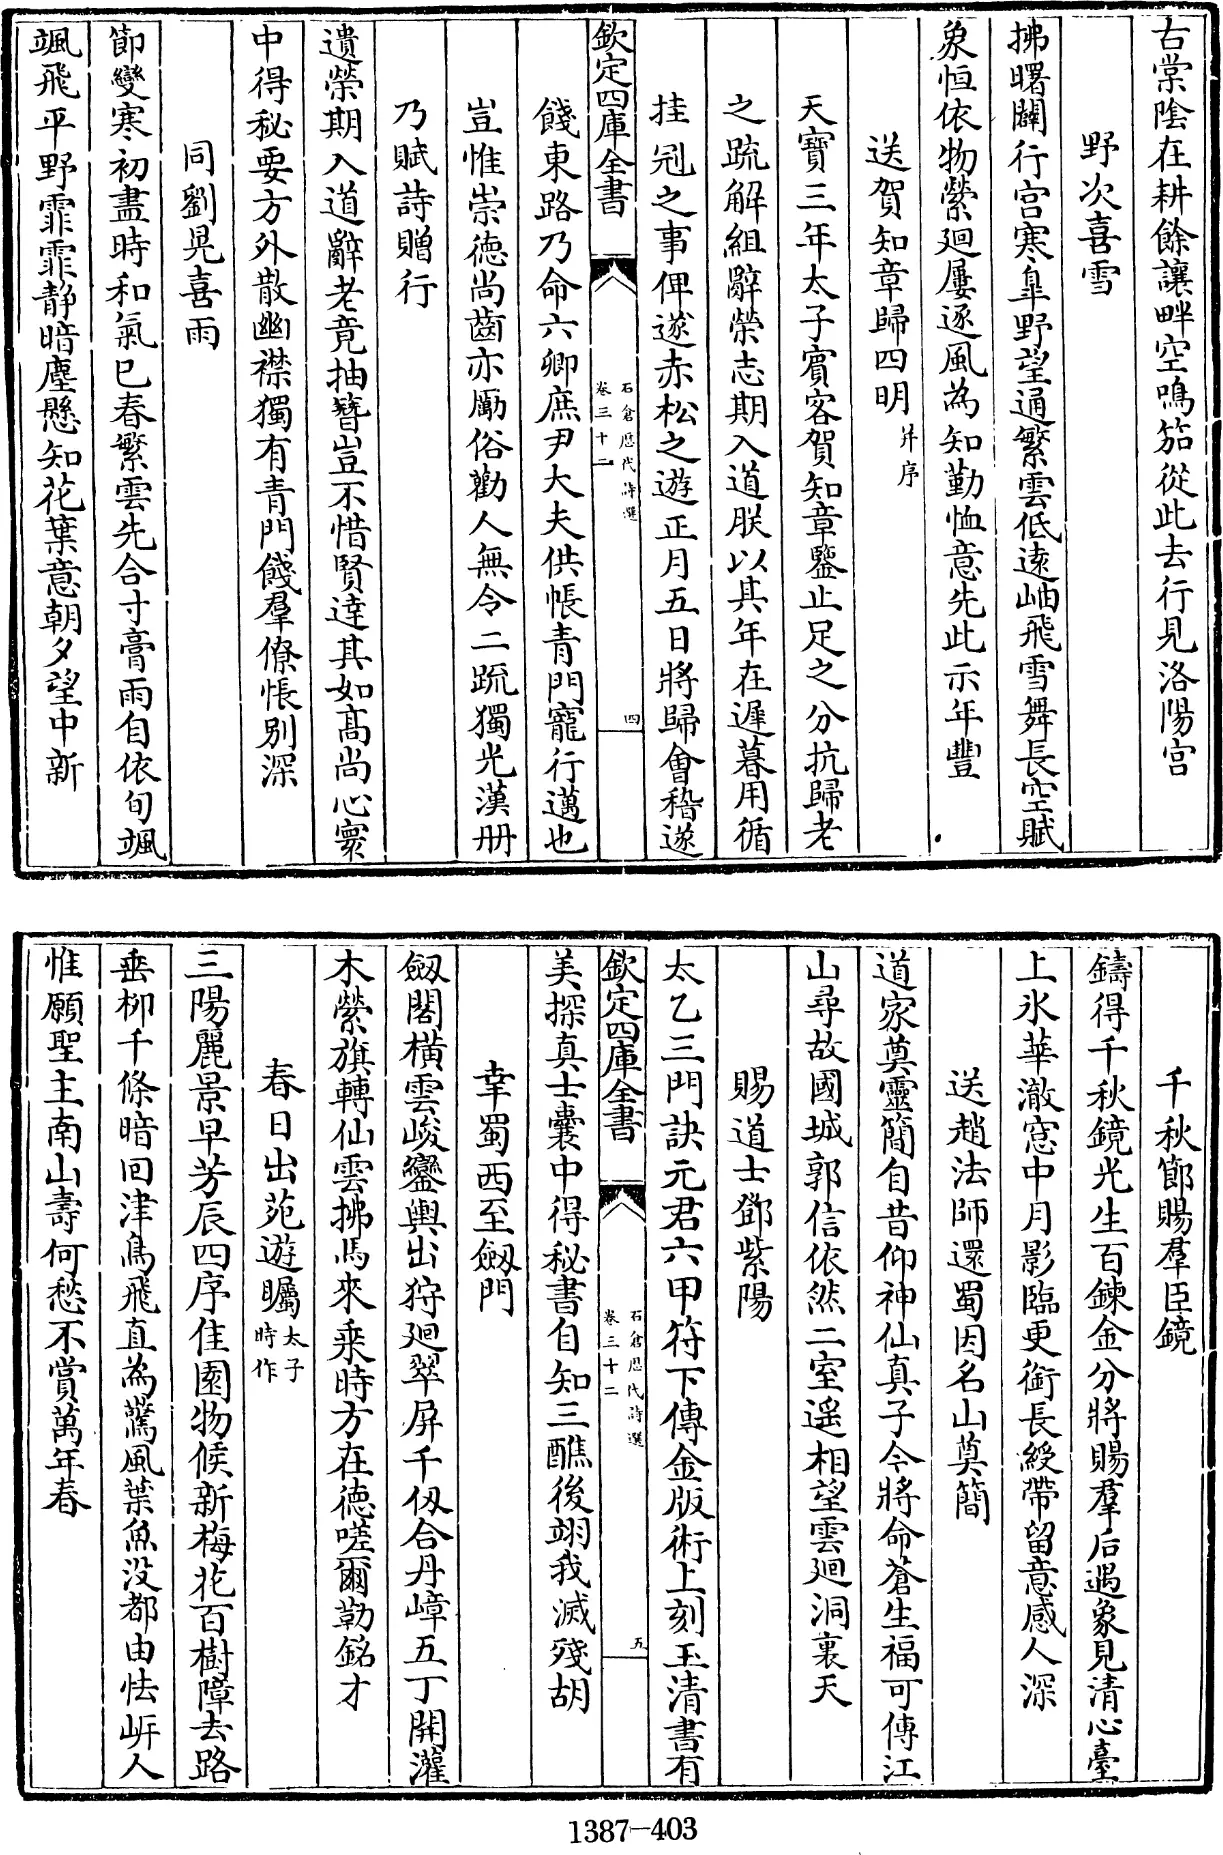 古棠陰在耕餘讓畔空鳴笳從此去行見洛陽宫
野次喜雪
拂曙闢行宫寒臯野望通繁雲低遠岫飛雪舞長空賦
象恒依物縈廻屢逐風為知勤恤意先此示年豐
送賀知章歸四明并序
天寶三年太子賓客賀知章鑒止足之分抗歸老
之疏解組辭榮志期入道朕以其年在遲暮用循
挂冠之事俾遂赤松之遊正月五日將歸會稽遂
欽定四庫全書
石倉歷代詩選
卷三十二
四
餞東路乃命六卿庶尹大夫供帳青門寵行邁也
豈惟崇德尚齒亦勵俗勸人無令二疏獨光漢冊
乃賦詩贈行
遺榮期入道辭老竟抽簪豈不惜賢達其如髙尚心寰
中得秘要方外散幽襟獨有青門餞羣僚悵别深
同劉晃喜雨
節變寒初盡時和氣已春繁雲先合寸膏雨自依旬颯
颯飛平野霏霏静暗塵懸知花葉意朝夕望中新
千秋節賜羣臣鏡
鑄得千秋鏡光生百鍊金分將賜羣后遇象見清心臺
上氷華澈窓中月影臨更銜長綬帶留意感人深
送趙法師還蜀因名山奠簡
道家奠靈簡自昔仰神仙真子今將命蒼生福可傳江
山尋故國城郭信依然二室遥相望雲廻洞裏天
賜道士鄧紫陽
太乙三門訣元君六甲符下傳金版術上刻玉清書有
欽定四庫全書
石倉歷代詩選
卷三十二
五
美探真士囊中得秘書自知三醮後翊我滅殘胡
幸蜀西至劔門
劔閣横雲峻鑾輿出狩廻翠屏千仞合丹嶂五丁開灌
木縈旗轉仙雲拂馬來乗時方在德嗟爾勒銘才
春日出苑遊矚太子時作
三陽麗景早芳辰四序佳園物候新梅花百樹障去路
垂柳千條暗回津鳥飛直為驚風葉魚没都由怯岍人
惟願聖主南山壽何愁不賞萬年春
1387-403